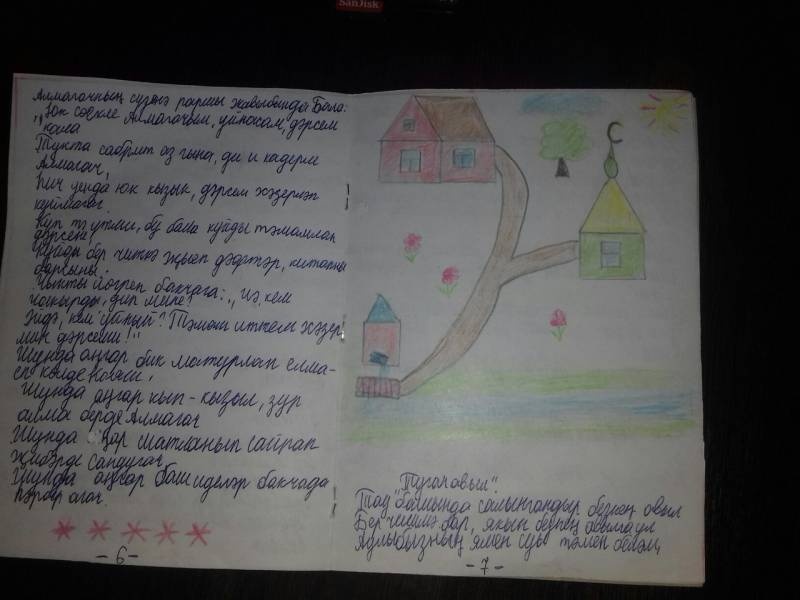 SanDisk
Алмагачның сүзенә каршы жавыбында Бала:
„Юк сөекле Алмагачым, уйнамам, дәрсем
кала
Тукта сабрит аз гына, ди и кадерле
Алмагач,
һич уенда юк кызык, дәрсем хәзерләп
куймагач
Күп тә үтми, бу бала куйды тәмамлап
дәрсене,
Куйды бер читкә җыеп дәфтәр, китапны
барсыны.
Чыкты йөгреп бакчага: „Йә, кем
чакырды, дип мине!
Әйдә, кем уйный? Тәмам иткем хәзер
мин дәрсеми!"
Шунда аңгар бик матурлап елма-
еп көлде кояш,
Шунда аңгар кып-кызыл, зур
алма бирде Алмагач
Шунда аңар шатланып сайрап
җибәрде сандугач
Шунда аңгар баш иделәр бакчада
һәрбер агач.
- 6 -
„Туган авыл".
Тау башында салынгандыр безнең авыл
Бер чишмә бар, якын безнең авылга ул
Аулыбызның ямен суы тәмен беләм,
- 7 -